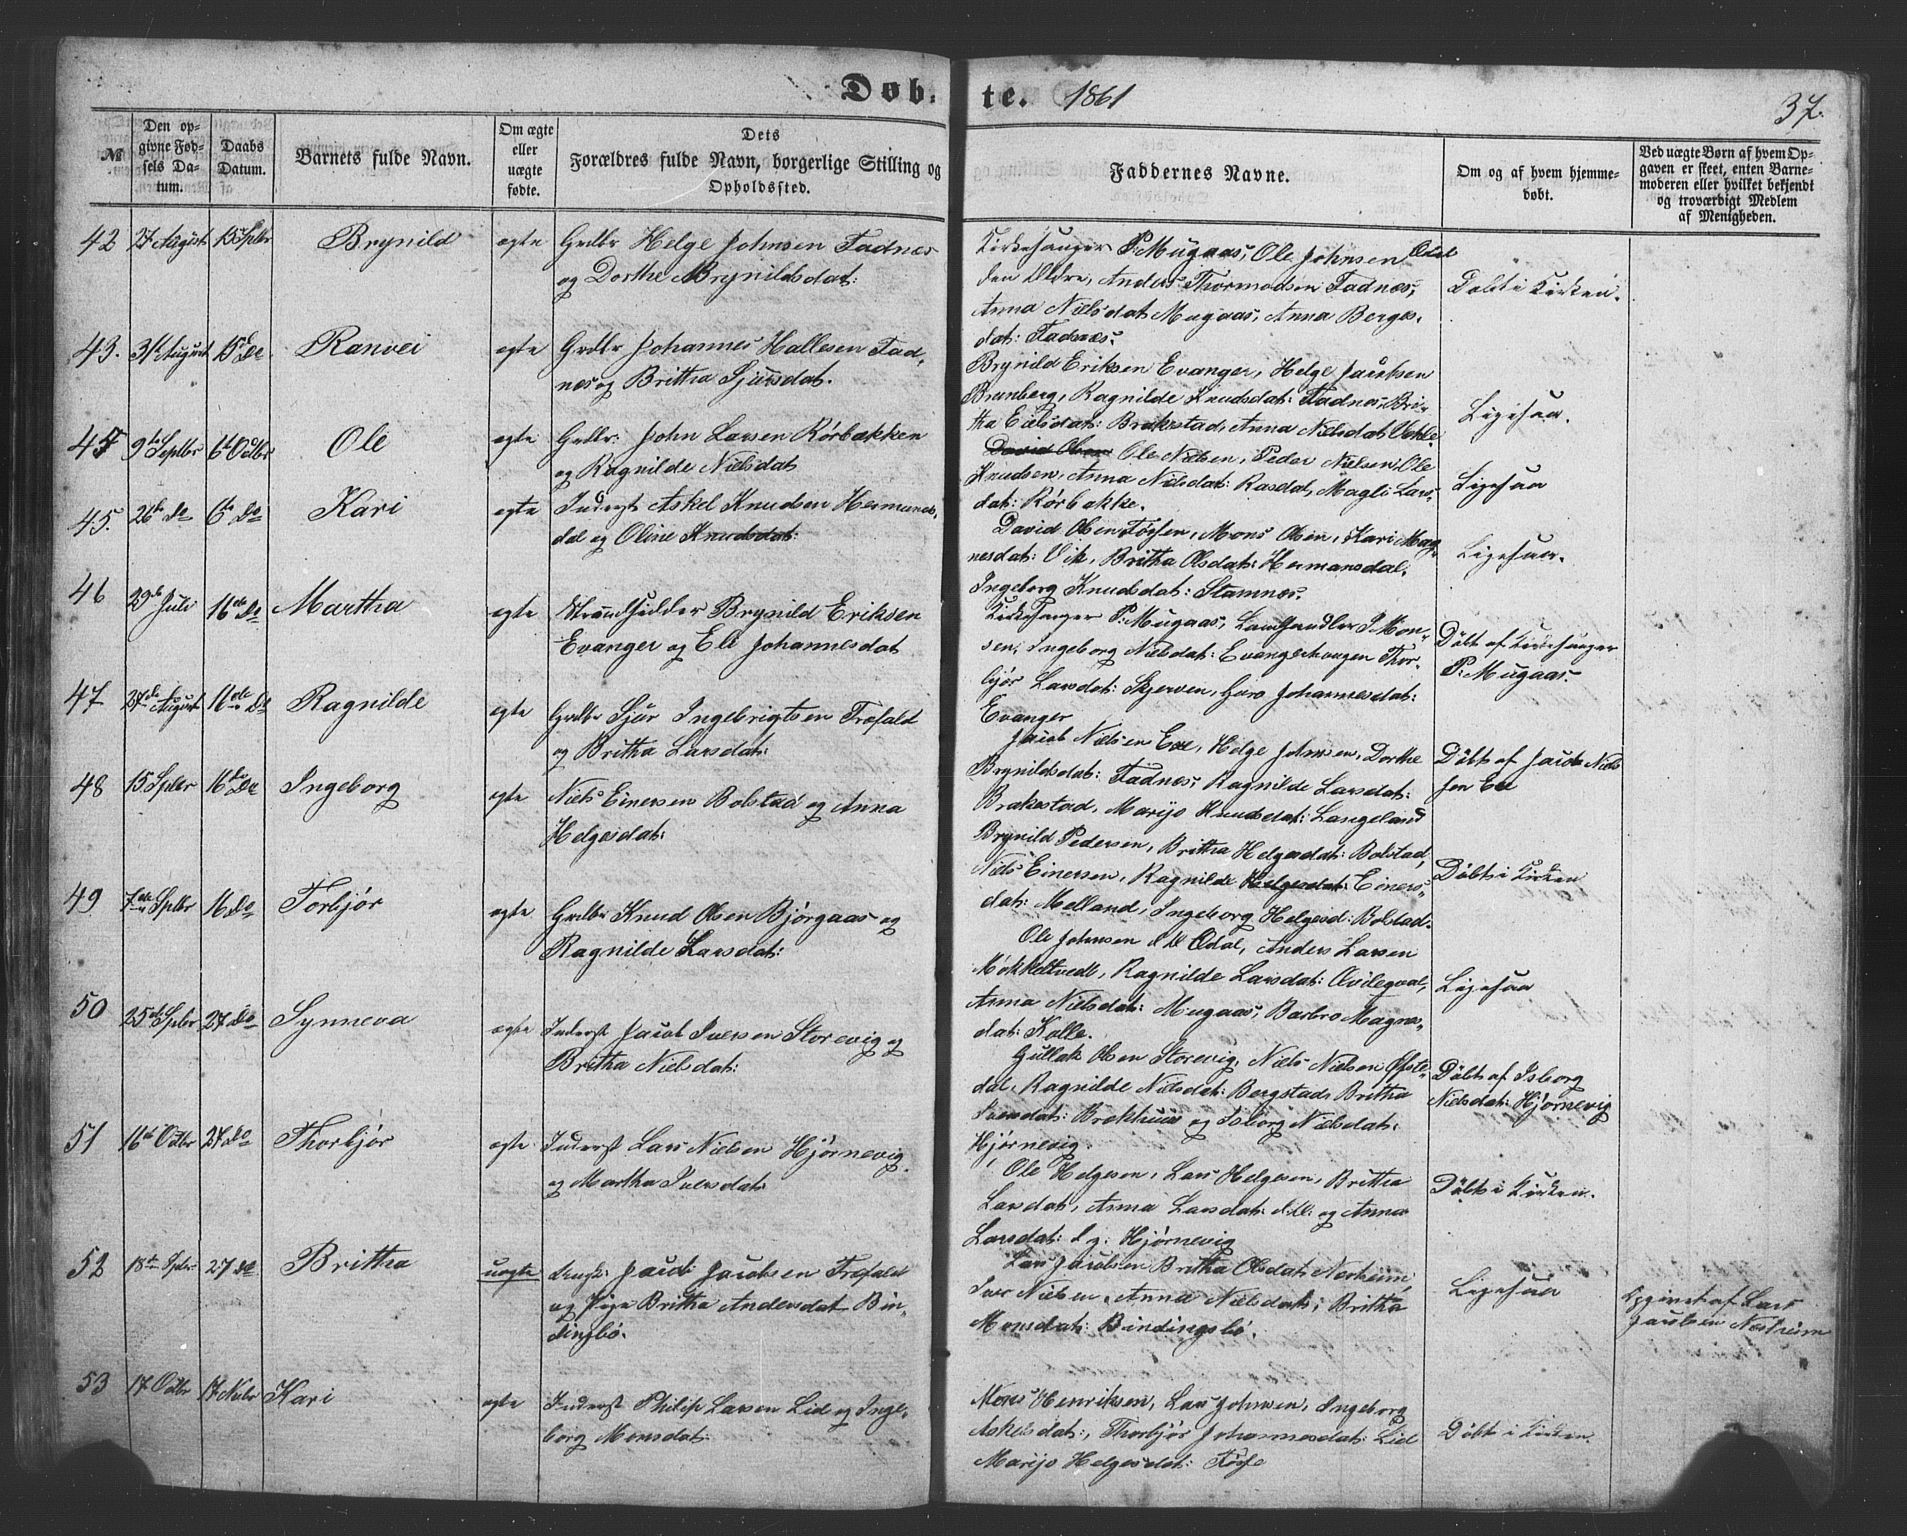 Døb- te. 1861
37.
№
Den op-
givne Fød-
sels Da-
tum.
Daabs
Datum.
Barnets fulde Navn.
Om ægte
eller
uægte
fødte.
Dets
Forældres fulde Navn, borgerlige Stilling og
Opholdssted.
Faddernes Navne.
Om og af hvem hjemme-
døbt.
Ved uægte Børn af hvem Op-
gaven er skeet, enten Barne-
moderen eller hvilket bekjendt
og troværdigt Medlem
af Menigheden.
42 27 August 15 Septbr Brynild ægte Grdbr Helge Johnsen Fadnes
og Dorthe Brynildsdat:
Kirkesanger P: Mugaas, Ole Johnsen Odal
den Ældre, Anders Thormodsen Fadnes,
Anna Nielsdat Mugaas, Anna Berges-
dat: Fadnes.
Døbt i Kirken.
43. 31 August 15 Do Ranvei ægte Grdbr Johannes Hallesen Fad-
nes og Brittha Sjursdat.
Brynild Eriksen Evanger, Helge Jacobsen
Brunberg, Ragnilde Knudsdat: Fadnes, Bri-
tha Eilifsdat: Brakestad, Anna Nielsdat
Ligesaa.
45 9de Septbr 6te Octbr Ole ægte Grdbr: John Larsen Rørbakken
og Ragnilde Nielsdat
David Olsen Ole Nielsen, Peder Nielsen, Ole
Knudsen, Anna Nielsdat: Rasdal, Magli Lars-
dat: Rørbakke.
Ligesaa
45. 26de do 6te Do Kari ægte Inderst Askel Knudsen Hermans-
dal og Oline Knudsdat:
David Olsen Fosen, Mons Olsen, Kari Mag-
nesdat: Vik, Brittha Olsdat: Hermansdal,
Ingeborg Knudsdat: Stamnes.
Ligesaa.
46 29de Juli 16de Do Martha ægte Strandsidder Brynild Eriksen
Evanger og Eli Johannesdat
Kirkesanger P: Mugaas, Landhandler J. Mon-
sen, Ingeborg Nielsdat: Evangerhougen Thor-
bjør Larsdat: Skjerven, Guro Johannesdat:
Evanger
Døbt af Kirkesanger
P: Mugaas.
47 27de August 16de Do Ragnilde ægte Grdbr Sjur Ingebrigtsen Træfald
og Brittha Larsdat:
Jacob Nielsen Eve, Helge Johnsen, Dorthe
Brynildsdat: Fadnes, Ragnilde Larsdat:
Brakestad, Marijo Knudsdat: Langeland
Døbt af Jacob Niel-
sen Eve
48 15 Septbr 16de Do Ingeborg ægte Niels Einersen Bolstad og Anna
Helgesdat:
Brynild Pedersen, Brittha Helgesdat: Bolstad,
Niels Einersen, Ragnilde Helgesdat: Einers-
dat: Melland, Ingeborg Helgesd: Bolstad.
Døbt i Kirken
49 7de Septbr 16 Do Torbjør ægte Grdbr Knud Olsen Bjørgaas og
Ragnilde Larsdat:
Ole Johnsen d: Æ: Odal, Anders Larsen
Møkkeltvedt, Ragnilde Larsdat:
Anna Nielsdat: Mugaas, Barbro Magnes-
dat: Kolle.
Ligesaa
50 25de Septbr 27 Do Synneva ægte Inderst Jacob Iversen Storevig og
Brittha Nielsdat:
Gullak Olsen Storevig, Niels Nielsen Øfste-
dal, Ragnilde Nielsdat: Bergstad, Brittha
Iversdat: og Isborg Nielsdat:
Hjørnevig.
Døbt af Isborg
Nielsdat: Hjørnevig
51 16de Octbr 27 Do Thorbjør ægte Inderst Lars Nielsen Hjørnevig
og Martha Iversdat:
Ole Helgesen, Lars Helgesen, Brittha
Larsdat, Anna Larsdat: d:Æ: og Anna
Larsdat: d. y: Hjørnevig
Døbt i Kirken.
52 18de Septbr 27 Do Brittha uægte Jacob Jacobsen Træfald
og Pige Brittha Andersdat Bin-
dingbø.
Lars Jacobsen Brittha Olsdat: Nesheim,
Iver Nielsen, Anna Nielsdat:, Brittha
Monsdat: Bindingsbø.
Ligesaa
Opgivet af Lars
Jacobsen Nesheim
53 17 Octbr 17 Novbr Kari ægte Inderst Philip Larsen Lid og Inge-
borg Monsdat:
Mons Henriksen, Lars Johnsen, Ingeborg
Askelsdat:, Thorbjør Johannesdat: Lid
Marijo Helgesdat: Fosse
Døbt i Kirken.